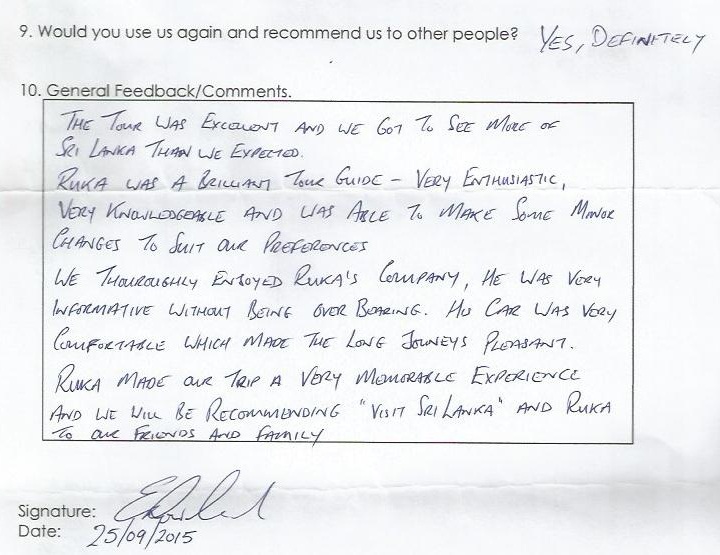 9. Would you use us again and recommend us to other people? YES, DEFINITELY
10. General Feedback/Comments.
THE TOUR WAS EXCELLENT AND WE GOT TO SEE MORE OF
SRI LANKA THAN WE EXPECTED.
RUKA WAS A BRILLIANT TOUR GUIDE - VERY ENTHUSIASTIC,
VERY KNOWLEDGEABLE AND WAS ABLE TO MAKE SOME MINOR
CHANGES TO SUIT OUR PREFERENCES
WE THOUROUGHLY ENJOYED RUKA'S COMPANY, HE WAS VERY
INFORMATIVE WITHOUT BEING OVER BEARING. HIS CAR WAS VERY
COMFORTABLE WHICH MADE THE LONG JOUNEYS PLEASANT.
RUKA MADE OUR TRIP A VERY MEMORABLE EXPERIENCE
AND WE WILL BE RECOMMENDING "VISIT SRI LANKA" AND RUKA
TO OUR FRIENDS AND FAMILY
Signature:
Date: 25/09/2015